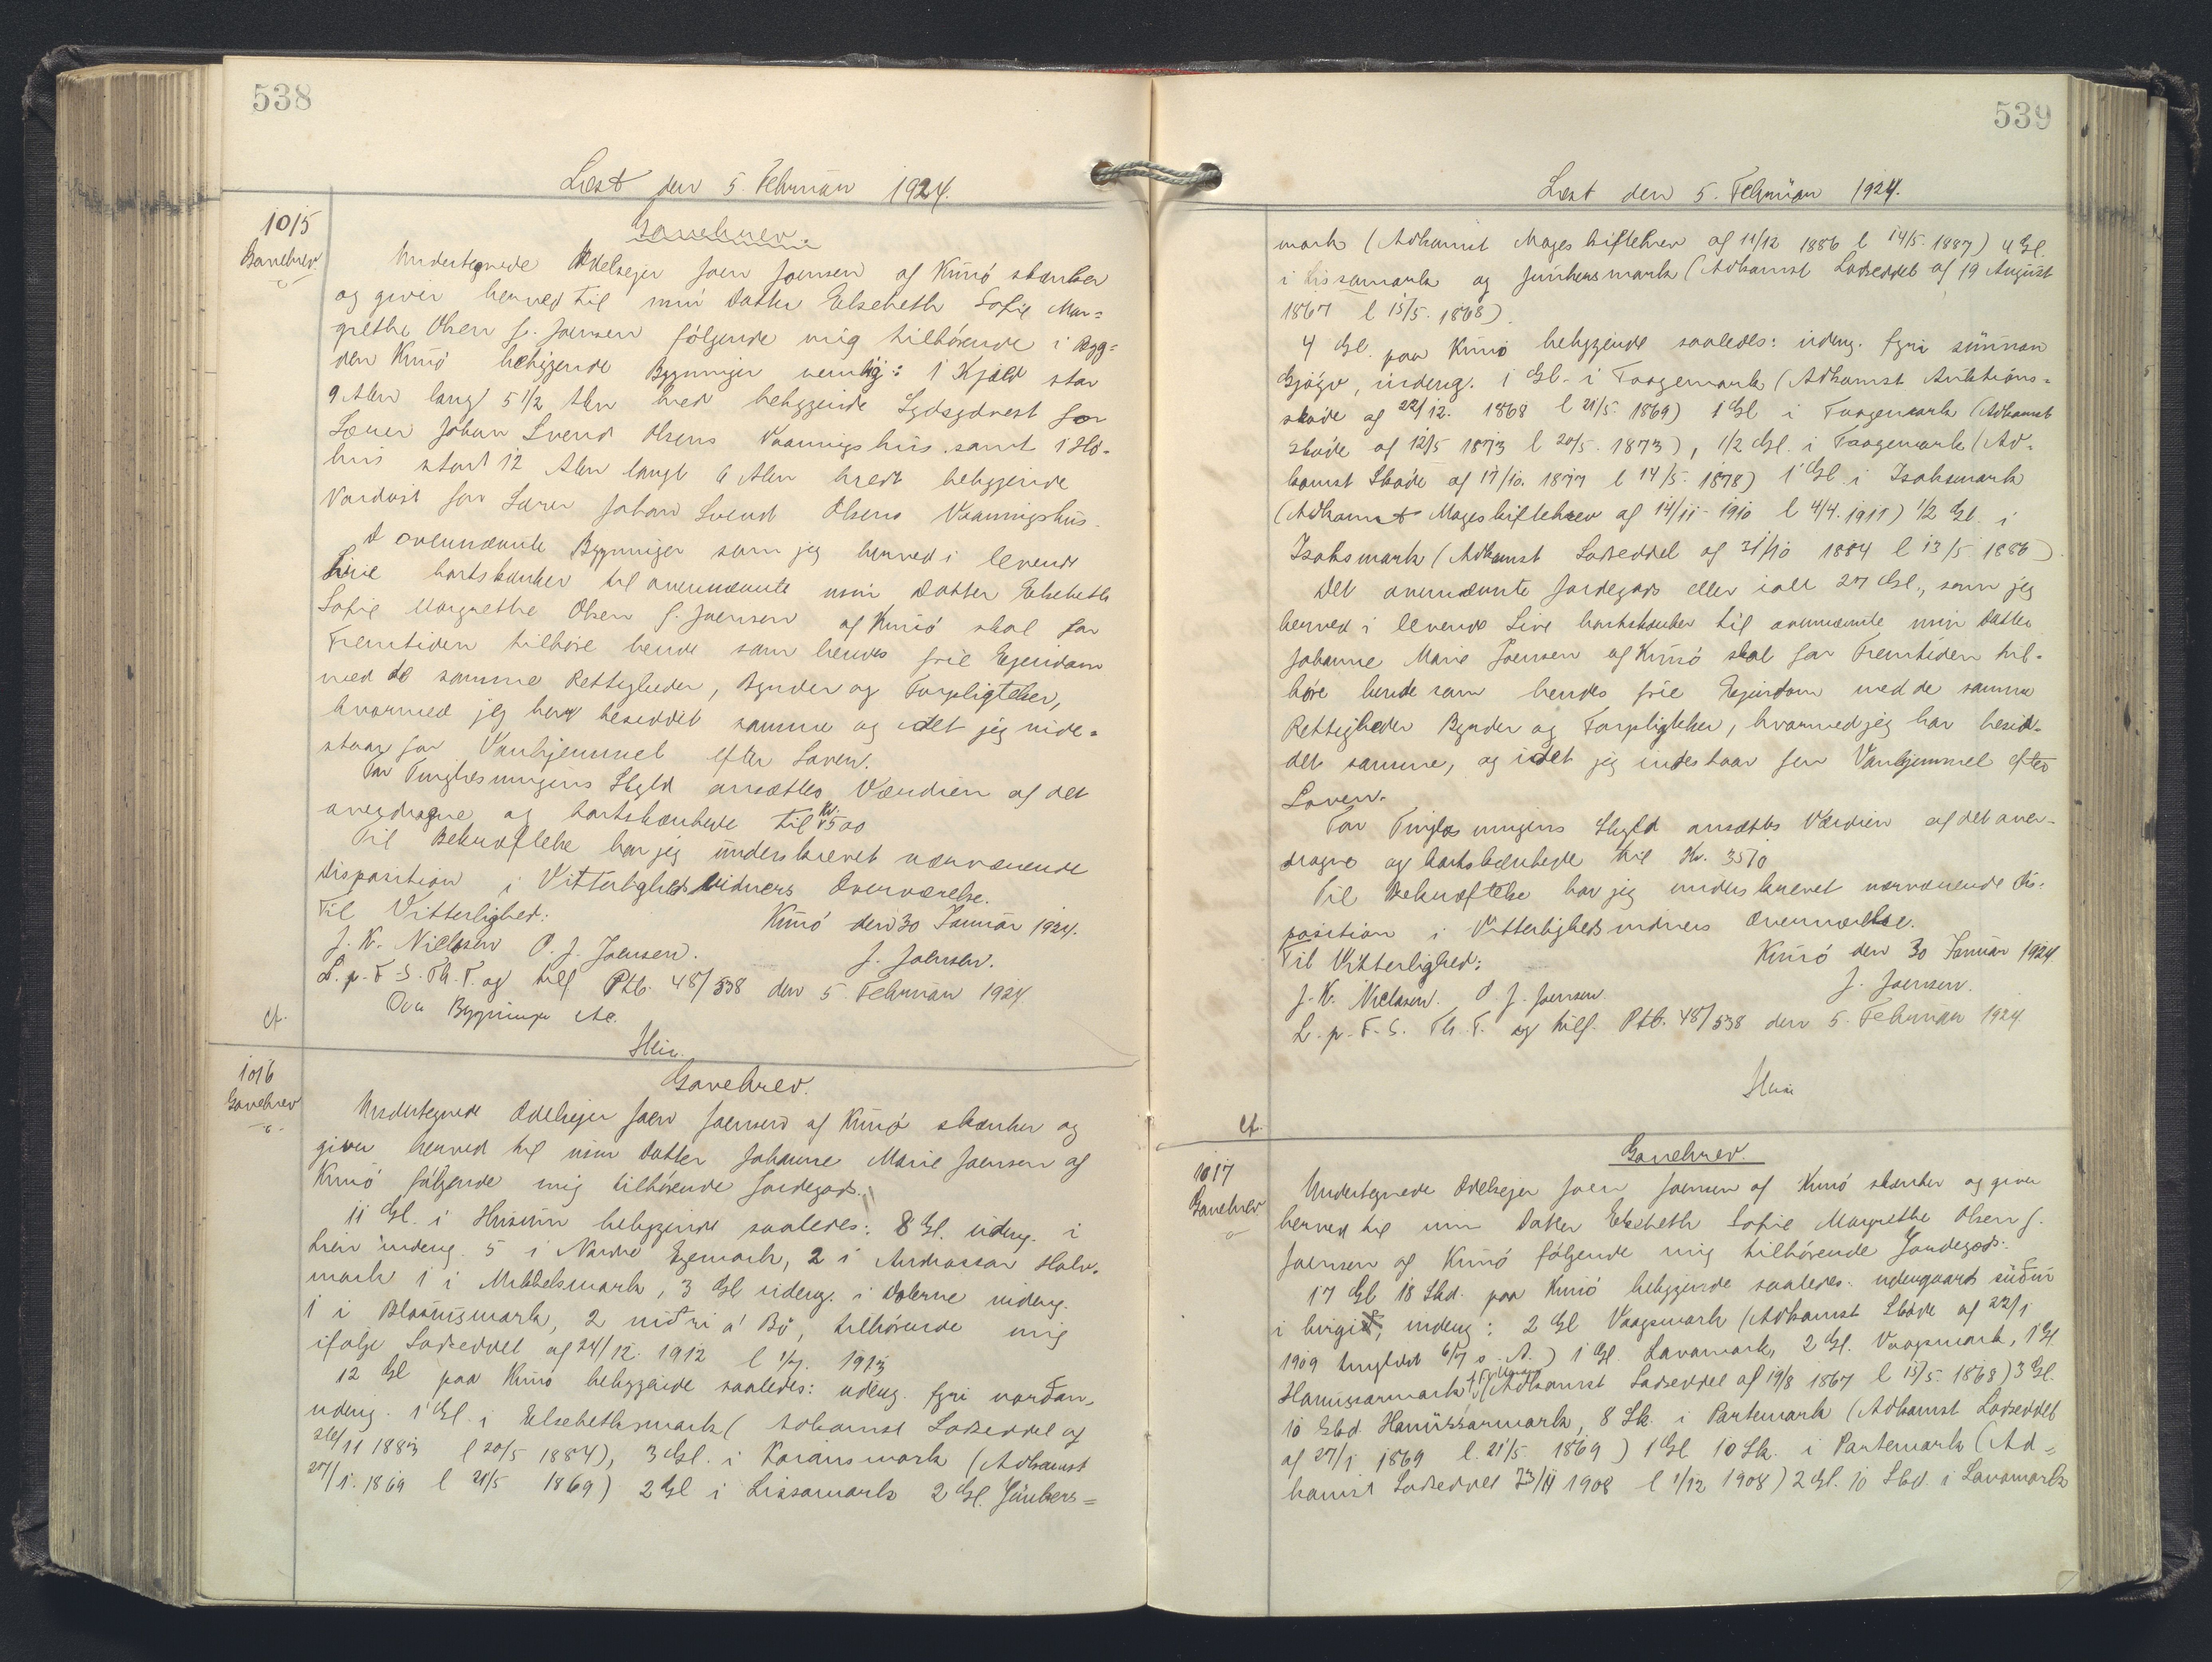 538
Læst den 5. Februar 1924.
1015
Gavebrev
Gavebrev.
Undertegnede Odelsejer Joen Joensen af Kunö skænker
og giver herved til min Datter Elsebeth Sofie Mar=
grethe Olsen f. Joensen følgende mig tilhörende i Byg=
den Kunö beliggende Bygninger nemlig: 1 Kjæld stor
9 Alen lang 5 1/2 Alen bred beliggende Sydsydvest for
Lærer Johan Svend Olsens Vaaningshus samt 1 Hö-
hus stort 12 Alen langt 6 Alen bredt beliggende
Nordost for Lærer Johan Svend Olsens Vaaningshus.
Ovennævnte Bygninger som jeg herved i levende
Live bortskænker til ovennævnte min Datter Elsebeth
Sofie Margrethe Olsen f. Joensen af Kunö skal for
Fremtiden tilhöre hende som hendes frie Ejendom
med de samme Rettigheder, Byrder og Forpligtelser,
hvormed jeg har besiddet samme og idet jeg inde=
staar for Vanhjemmel efter Loven.
For Tinglæsningens Skyld ansættes Værdien af det
overdragne og bortskænkede til Kr. 1500
Til Bekræftelse har jeg underskrevet nærværende
Disposition i Vitterlighedsvidners Overværelse.
Til Vitterlighed: Kunö den 30 Januar 1924.
J. K. Niclasen O. J. Joensen. J. Joensen.
L. p. F. S. Th. T. og tilf Ptb. 48/538 den 5. Februar 1924.
Ova Bygninger etc.
cf.
1016
Gavebrev
Gavebrev.
Undertegnede Odelsejer Joen Joensen af Kunö skænker og
giver herved til min Datter Johanne Marie Joensen af
Kunö følgende mig tilhörende Jordegods:
11 Gl. i Husum beliggende saaledes: 8 Gl. udeng. i
indeng. 5 i Nordre Egemark, 2 i Andrassar Halv-
mark 1 i Mikkelsmark, 3 Gl udeng. i Dolerne indeng.
1 i Blaasusmark, 2 niðri á Bö, tilhörende mig
ifølge Lodseddel af 24/12. 1912 l 1/7. 1913
12 Gl paa Kunö beliggende saaledes: udeng. fyri norðan,
indeng. 1 Gl. i Elsebethsmark (Adkomst Lodseddel af
26/11 1883 l 20/5 1884), 3 Gl. i Karansmark (Adkomst
27/1. 1869 l 21/5 1869) 2 Gl i Lissamark 2 Gl. Junkers=
539
Læst den 5. Februar 1924.
mark (Adkomst Mageskiftebrev af 11/12 1886 l 14/5. 1887) 4 Gl.
i Lissamark og Junkersmark (Adkomst Lodseddel af 19 August
1867 l 15/5. 1868).
4 Gl. paa Kunö beliggende saaledes: udeng. fyri sunnan
Gjógv, indeng. 1 Gl. i Toogemark (Adkomst Auktions=
sköde af 22/12. 1868 l 21/5. 1869) 1 Gl i Toogemark (Adkomst
Sköde af 12/5 1873 l 20/5. 1873), 1/2 Gl. i Toogemark (Ad=
komst Sköde af 17/10. 1877 l 14/5. 1878) 1 Gl. i Isaksmark
(Adkomst Mageskiftebrev af 14/11 - 1910 l 4/4. 1911) 1/2 Gl. i
Isaksmark (Adkomst Lodseddel af 31/10 1884 l 13/5 1886).
Det ovennævnte Jordegods eller ialt 27 Gl., som jeg
herved i levende Live bortskænker til ovennævnte min Datter
Johanne Marie Joensen af Kunö skal for Fremtiden til-
höre hende som hendes frie Ejendom med de samme
Rettigheder Byrder og Forpligtelser, hvormed jeg har besid-
det samme, og idet jeg indestaar for Vanhjemmel efter
Loven.
For Tinglæsningens Skyld ansættes Værdien af det over-
dragne og bortskænkede til Kr. 3510
Til Bekræftelse har jeg underskrevet nærværende Dis-
position i Vitterlighedsvidners Overværelse.
Til Vitterlighed: Kunö den 30 Januar 1924
J. K. Niclasen. O. J. Joensen. J. Joensen.
L. p. F. S. Th. T. og tilf. Ptb. 48/538 den 5. Februar 1924
cf.
1017
Gavebrev
Gavebrev.
Undertegnede Odelsejer Joen Joensen af Kunö skænker og giver
herved til min Datter Elsebeth Sofie Margrethe Olsen f.
Joensen af Kunö følgende mig tilhörende Jordegods:
17 Gl 18 Skd. paa Kunö beliggende saaledes: udengaards suður
i indeng: 2 Gl Vaagsmark (Adkomst Sköde af 22/1
1909 tinglæst 6/7 s. A.) 1 Gl. Lavamark, 2 Gl. Vaagsmark, 1 Gl
Hanusarmark (Adkomst Lodseddel af 19/8 1867 l 15/5. 1868) 3 Gl.
10 Skd. Hanussarmark, 8 Sk. i Partemark (Adkomst Lodseddel
af 27/1 1869 l. 21/5 1869) 1 Gl 10 Sk. i Partemark (Ad=
komst Lodseddel 23/11 1908 l 1/12 1908) 2 Gl. 10 Skd. i Lavamark